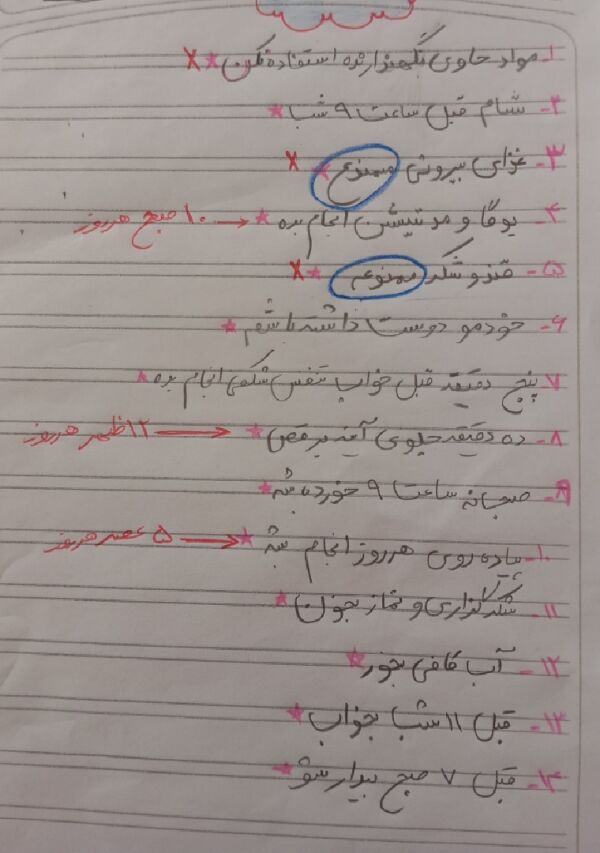 ۱- مواد حاوی نگهدارنده استفاده نکن ★ X
۲- شام قبل ساعت ۹ شب ★
۳- غذای بیرونی ممنوع ★ X
۴- یوگا و مدتیشن انجام بده ★ ← ۱۰ صبح هرروز
۵- قند و شکر ممنوع ★ X
۶- خودمو دوست داشته باشم ★
۷- پنج دقیقه قبل خواب تنفس شکمی انجام بده ★
۸- ده دقیقه جلوی آینه برقص ★ ← ۱۲ ظهر هرروز
۹- صبحانه ساعت ۹ خورده بشه ★
۱۰- پیاده روی هرروز انجام بشه ★ ← ۵ عصر هرروز
۱۱- شکرگزاری و نماز بخون ★
۱۲- آب کافی بخور ★
۱۳- قبل ۱۱ شب بخواب ★
۱۴- قبل ۷ صبح بیدار شو ★